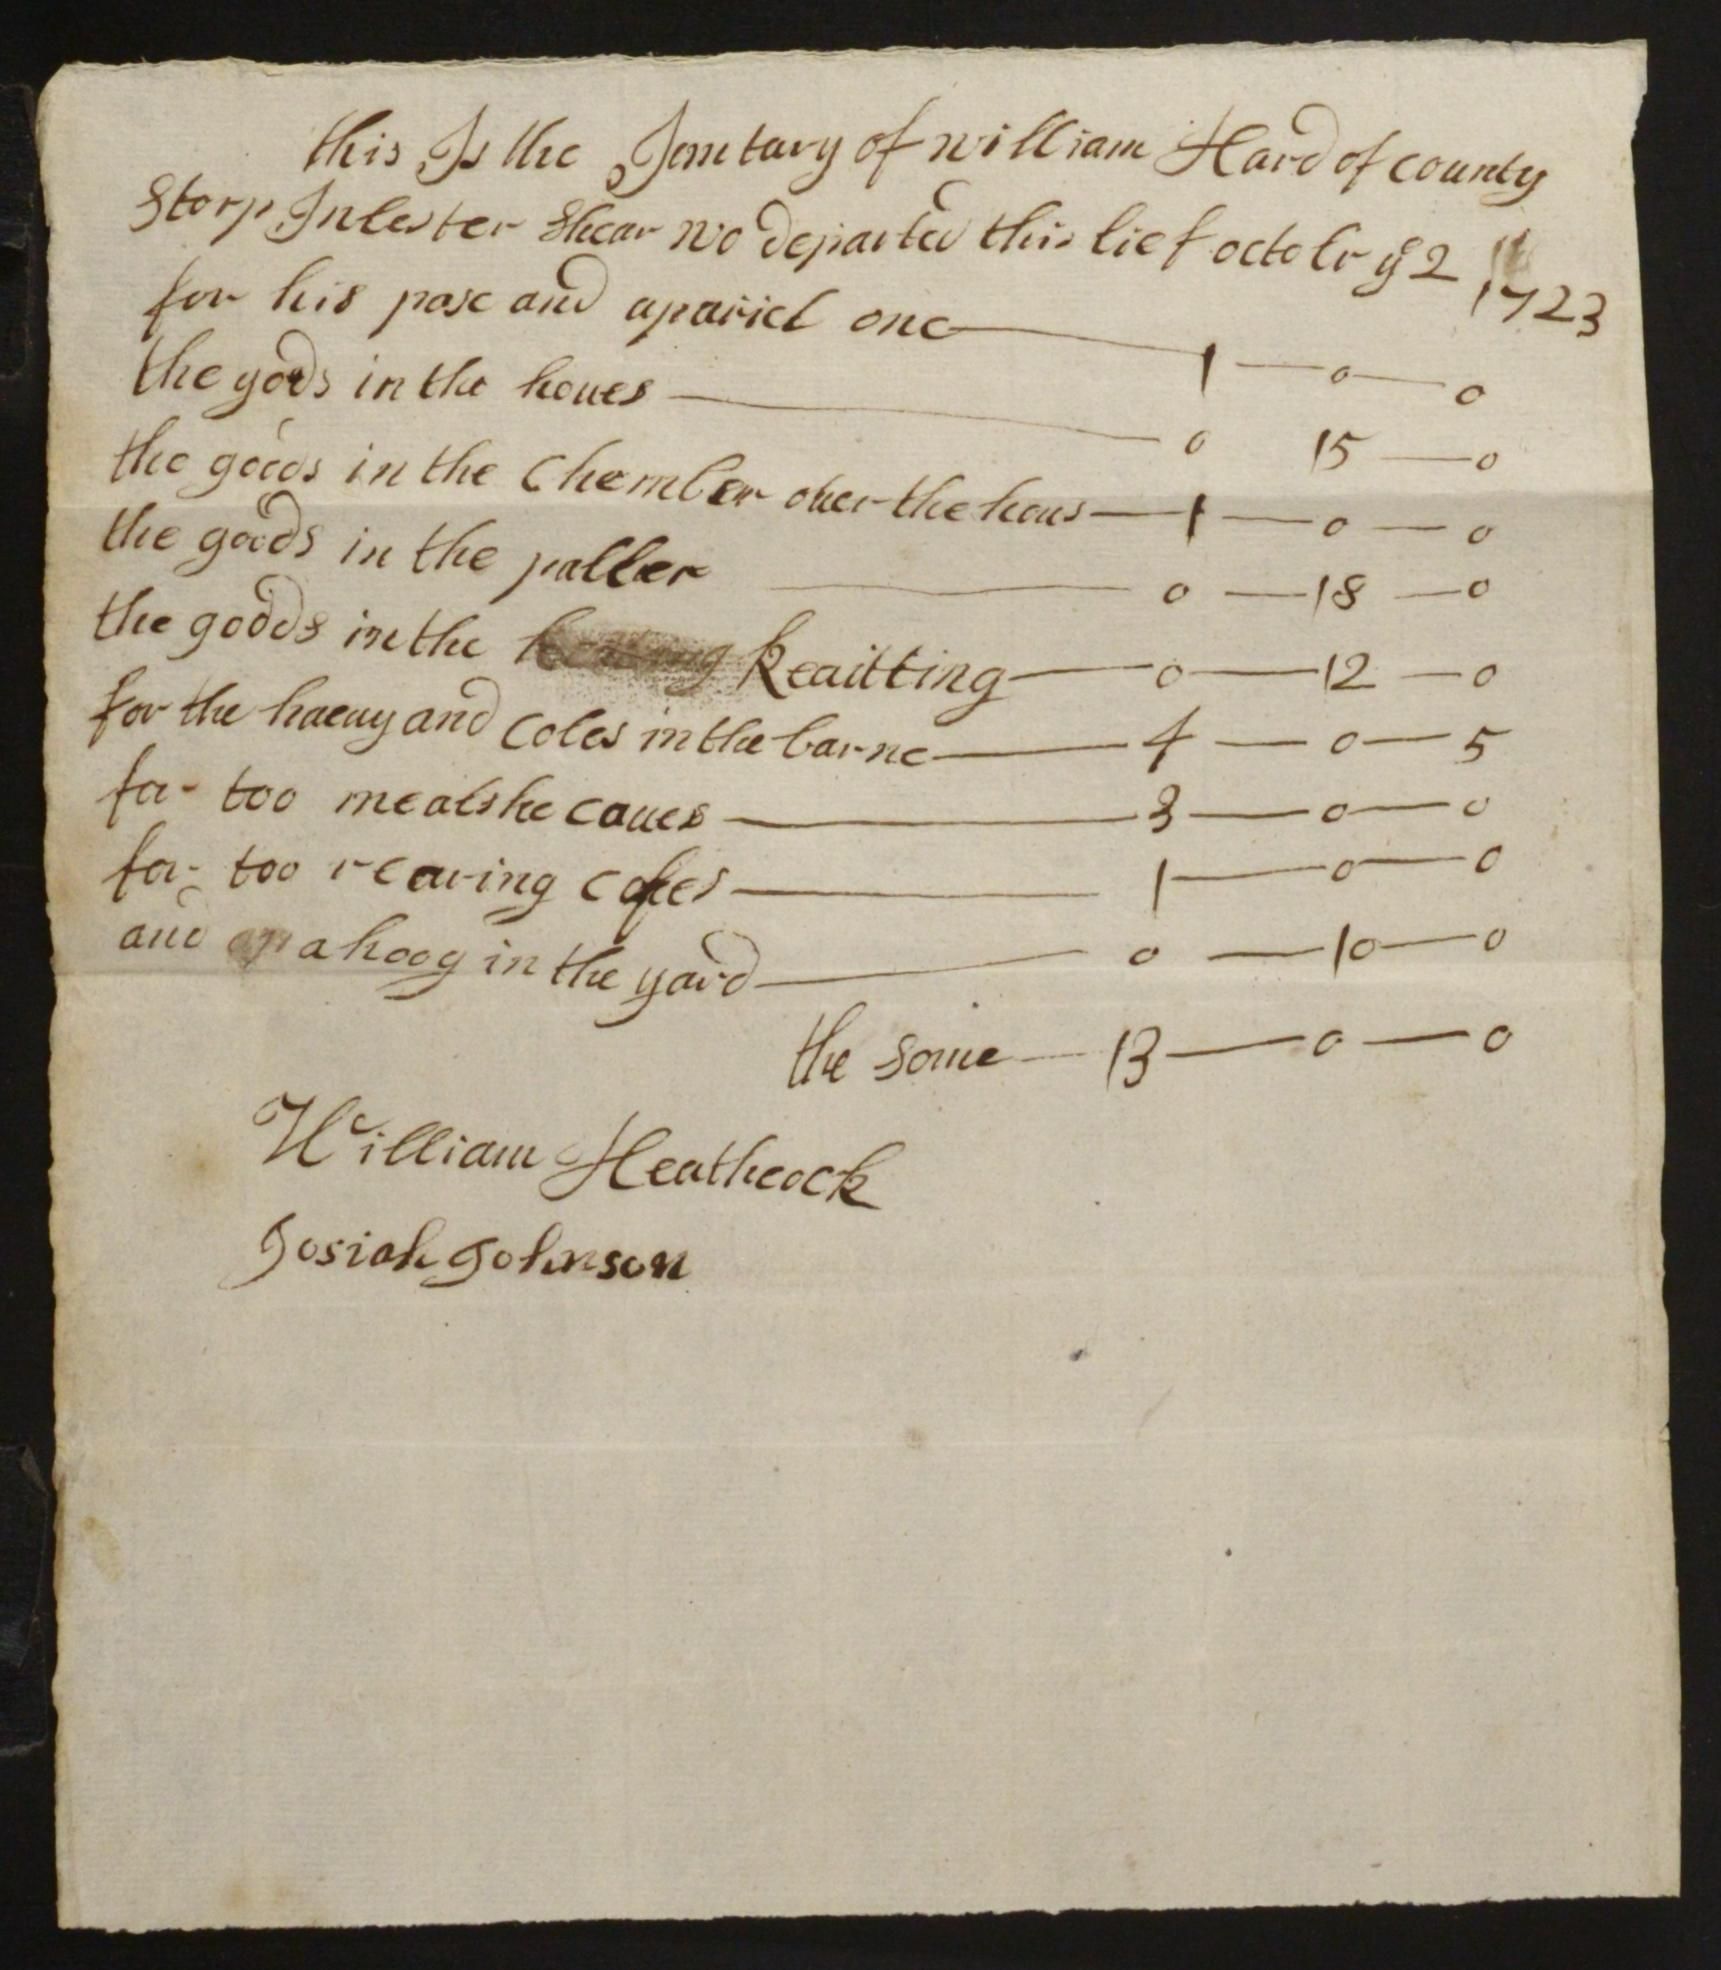 this Is the Jnuetary of william Hard of county
Storp Inlester Shear wo departed this lief octobr ye 2 1723
for his pose and apariel one — 1 — 0 — 0
the gods in the houes — 0 15 — 0
the goods in the Chember ouer the hous — 1 — 0 — 0
the goods in the paller — 0 — 18 — 0
the goods in the keaitting — 0 — 12 — 0
for the haeuy and Coles in the barne — 4 — 0 — 5
for too mealshe Coues — 3 — 0 — 0
for too rearing cofes — 1 — 0 — 0
and a hoog in the yard — 0 — 10 — 0
the some — 13 — 0 — 0
William Heathcock
Josiah Johnson